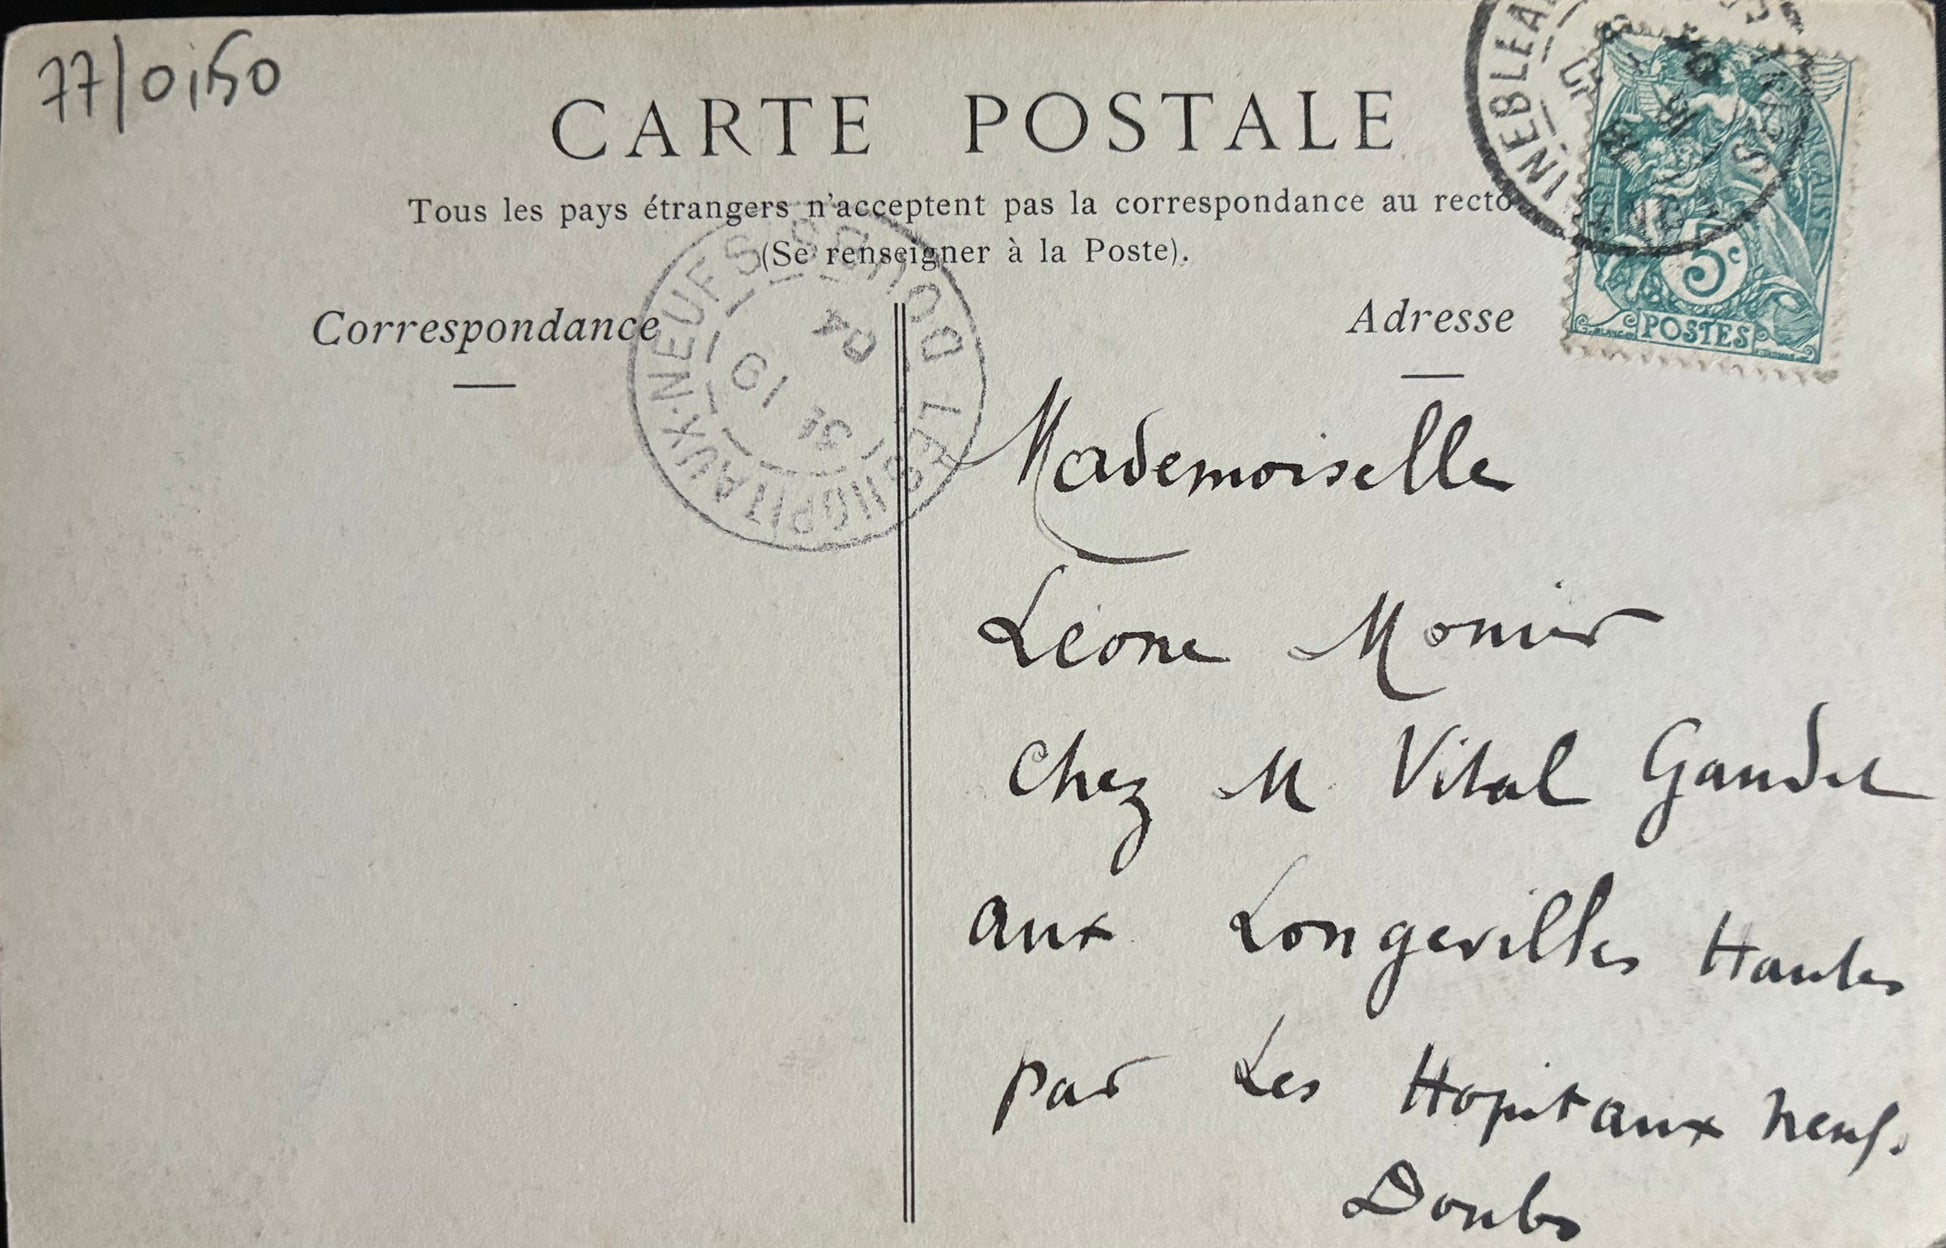 77/0,50
CARTE POSTALE
Tous les pays étrangers n'acceptent pas la correspondance au recto
(Se renseigner à la Poste).
Correspondance
Adresse
INEBLEA
FRANÇAISE
5c
POSTES
LES HOPITAUX-NEUFS DOUBS
31
04
Mademoiselle
Léone Monier
chez M Vital Gaudet
aux Longevilles Hautes
par Les Hopitaux neufs
Doubs